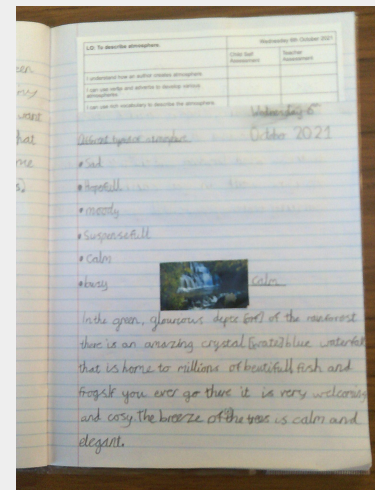 LO: To describe atmosphere.
Wednesday 6th October 2021
Child Self Assessment
Teacher Assessment
I understand how an author creates atmosphere
I can use verbs and adverbs to develop various atmospheres
I can use rich vocabulary to describe the atmosphere
Wednesday 6th
October 2021
Different types of atmosphere
• Sad
• Hopefull
• moody
• Suspensefull
• Calm
• busy
calm
In the green, glourious depts [of] of the rainforrost
there is an amazing crystal [water] blue waterfall
that is home to millions of beatifull fish and
frogs. If you ever go there it is very welcoming
and cosy. The breeze of the trees is calm and
elegant.